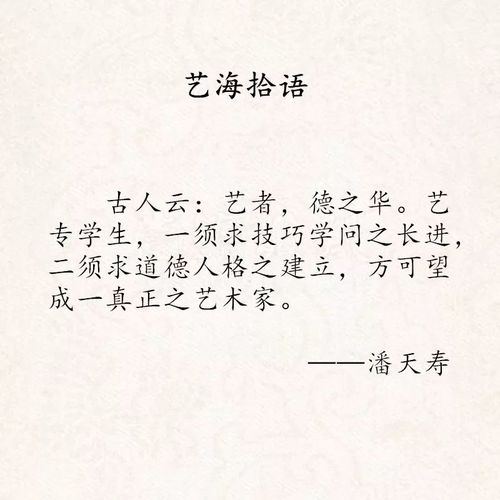 艺海拾语
古人云：艺者，德之华。艺
专学生，一须求技巧学问之长进，
二须求道德人格之建立，方可望
成一真正之艺术家。
——潘天寿